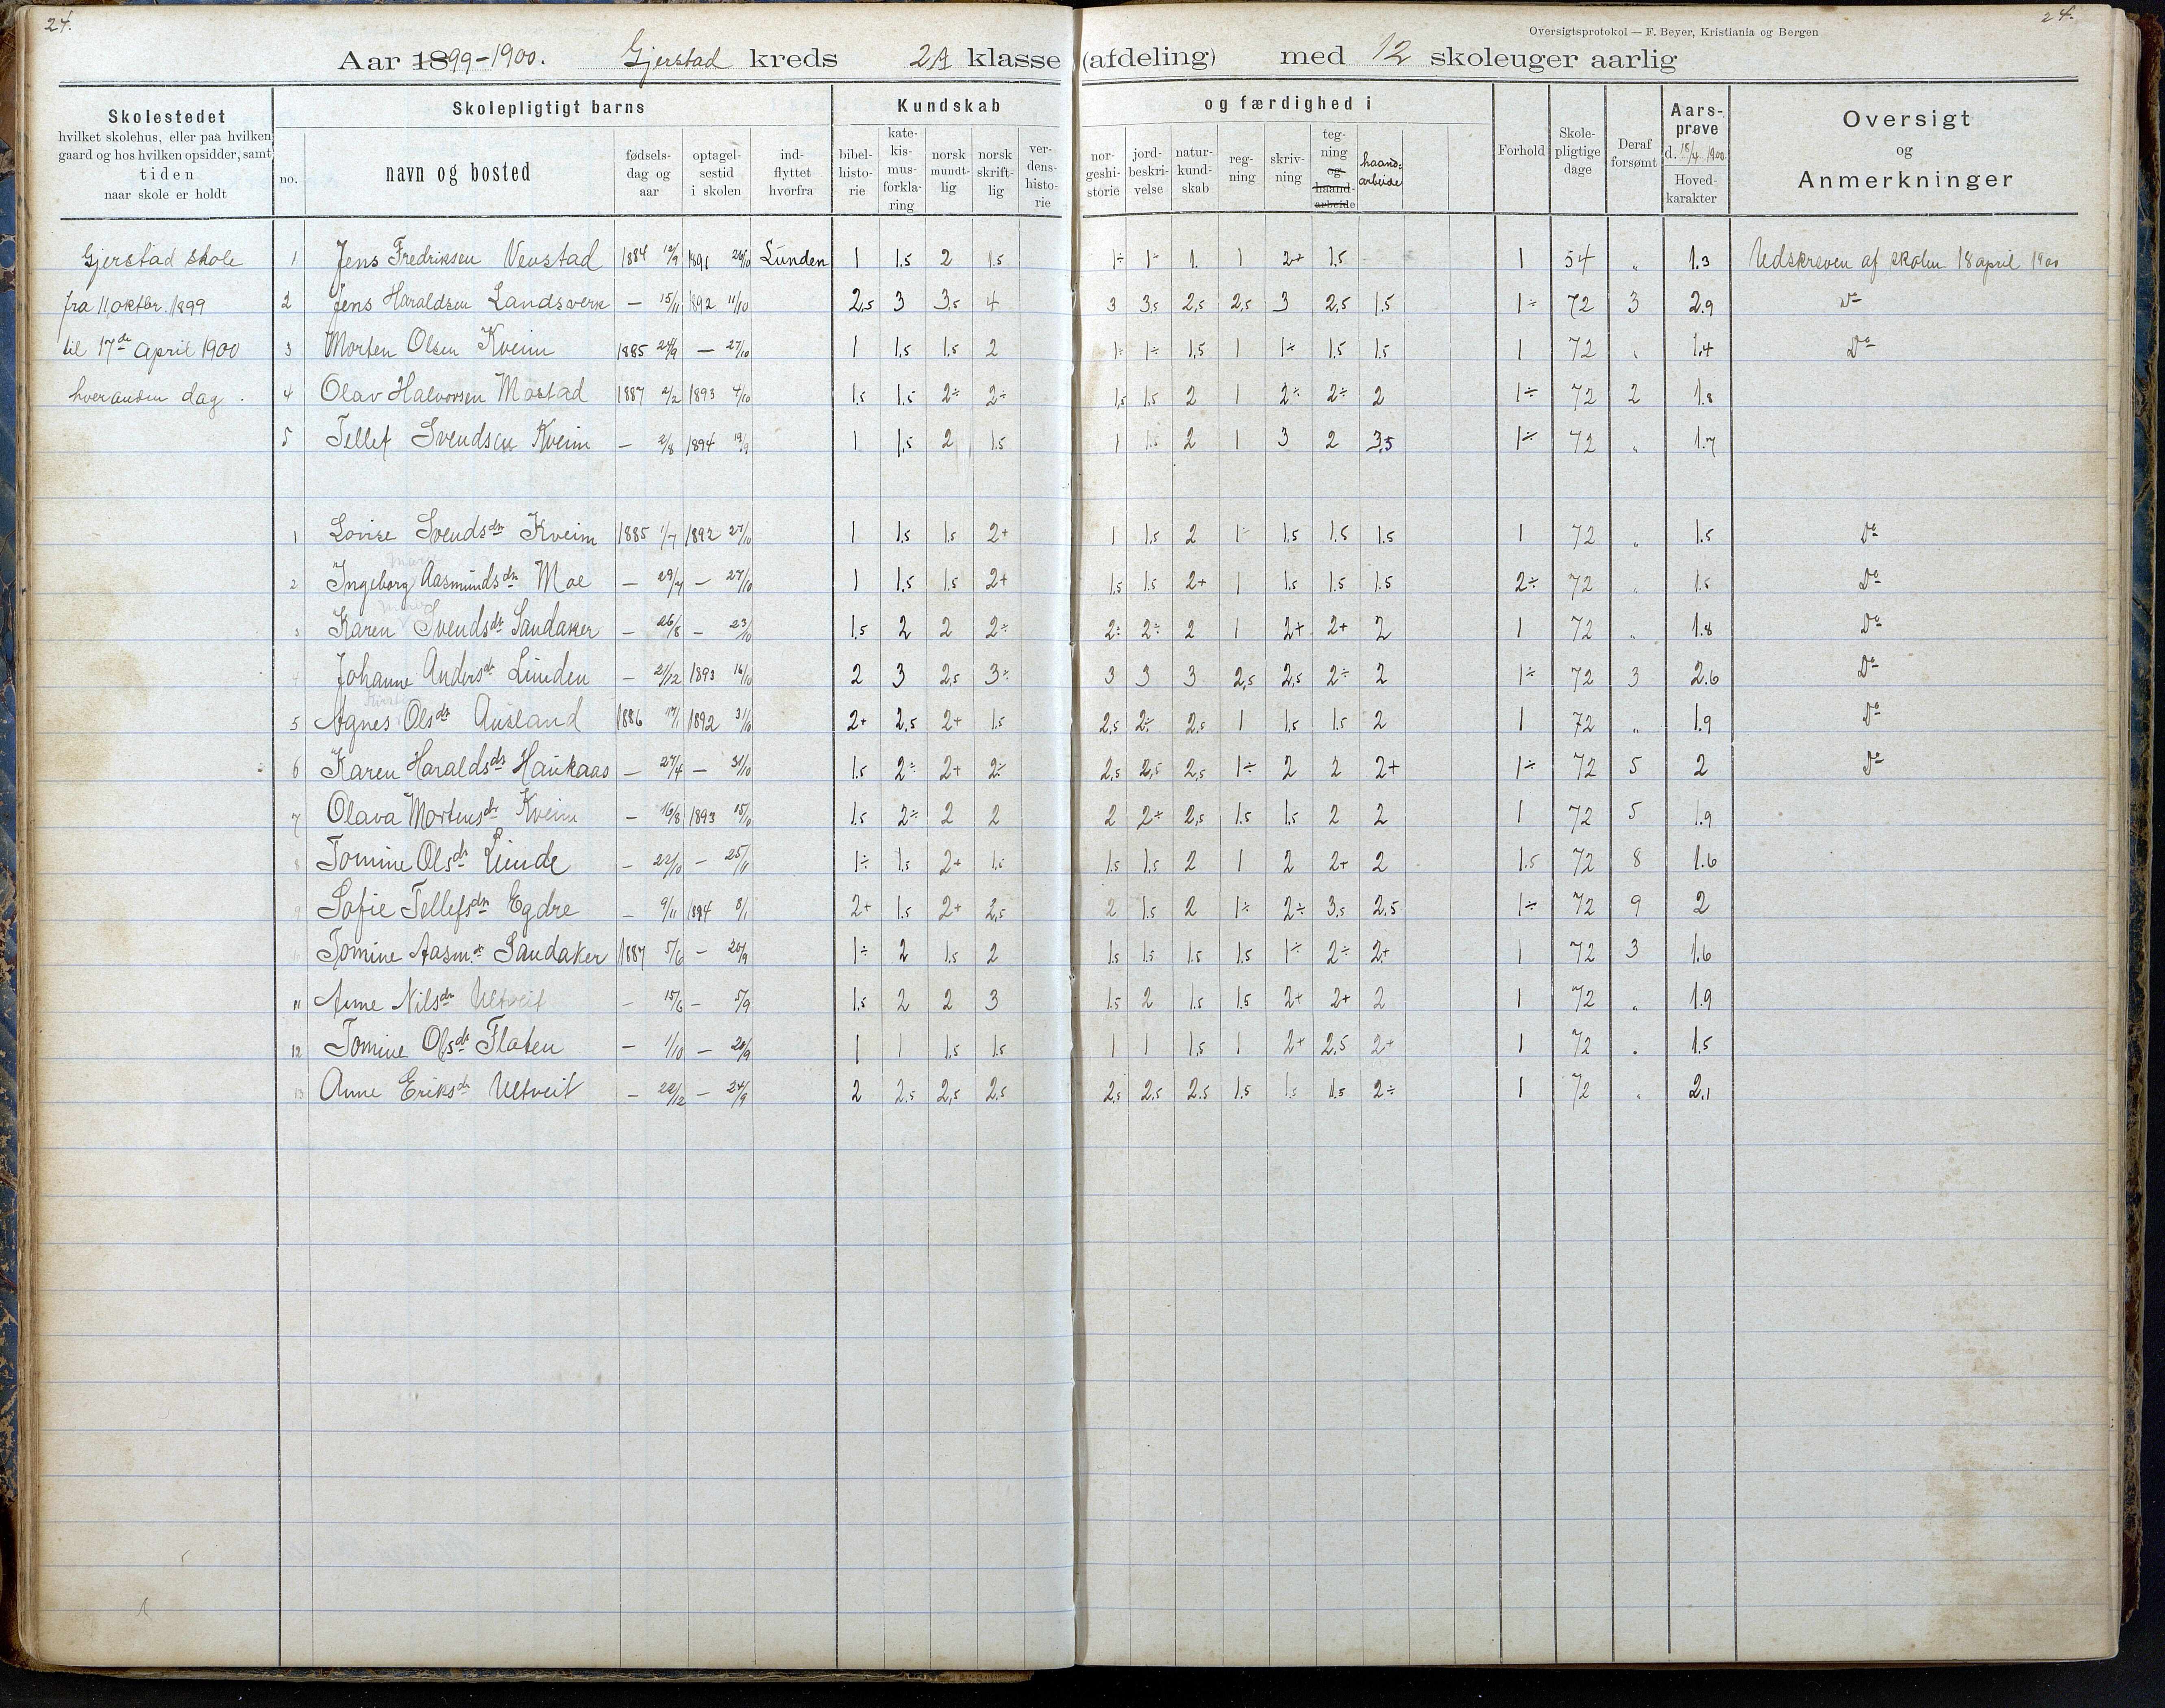 24.
24.
Oversigtsprotokol — F. Beyer, Kristiania og Bergen
Aar 1899-1900. Gjerstad kreds 2A klasse (afdeling) med 12 skoleuger aarlig
Skolestedet
hvilket skolehus, eller paa hvilken
gaard og hos hvilken opsidder, samt
tiden
naar skole er holdt
Skolepligtigt barns
no.
navn og bosted
fødsels-
dag og
aar
optagel-
sestid
i skolen
ind-
flyttet
hvorfra
Kundskab og færdighed i
bibel-
histo-
rie
kate-
kis-
mus-
forkla-
ring
norsk
mundt-
lig
norsk
skrift-
lig
ver-
dens-
histo-
rie
nor-
geshi-
storie
jord-
beskri-
velse
natur-
kund-
skab
reg-
ning
skriv-
ning
teg-
ning
og
haand-
arbeide
haand-
arbeide
Forhold
Skole-
pligtige
dage
Deraf
forsømt
Aars-
prøve
d. 18/4 1900
Hoved-
karakter
Oversigt
og
Anmerkninger
Gjerstad skole
fra 11 oktbr. 1899
til 17de april 1900
hver anden dag.
1 Jens Fredriksen Vevstad 1884 12/9 1891 26/10 Lunden 1 1.5 2 1.5 1÷ 1÷ 1. 1 2+ 1.5 - 1 54 „ 1.3 Udskreven af skolen 18 april 1900
2 Jens Haraldsen Landsverk — 15/11 1892 11/10 2,5 3 3,5 4 3 3,5 2,5 2,5 3 2,5 1.5 1÷ 72 3 2.9 Do
3 Morten Olsen Kveim 1885 24/9 — 27/10 1 1,5 1.5 2 1÷ 1÷ 1,5 1 1÷ 1.5 1.5 1 72 „ 1.4 Do
4 Olav Halvorsen Mostad 1887 2/2 1893 4/10 1.5 1.5 2÷ 2÷ 1,5 1.5 2 1 2÷ 2÷ 2 1÷ 72 2 1.8
5 Tellef Svendsen Kveim — 2/8 1894 19/9 1 1,5 2 1.5 1 1.5 2 1 3 2 3,5 1÷ 72 „ 1.7
1 Lovise Svendsdtr Kveim 1885 1/7 1892 27/10 1 1.5 1.5 2+ 1 1.5 2 1÷ 1.5 1.5 1.5 1 72 „ 1.5 Do
2 Ingeborg Aasmundsdtr Moe — 29/7 — 27/10 1 1.5 1.5 2+ 1.5 1.5 2+ 1 1.5 1.5 1.5 2÷ 72 „ 1.5 Do
3 Karen Svendsdtr Sandaker — 26/8 — 23/10 1.5 2 2 2÷ 2÷ 2÷ 2 1 2+ 2+ 2 1 72 „ 1.8 Do
4 Johanne Andersdtr Lunden — 21/12 1893 16/10 2 3 2,5 3÷ 3 3 3 2,5 2,5 2÷ 2 1÷ 72 3 2.6 Do
5 Agnes Olsdtr Ausland 1886 17/1 1892 31/10 2+ 2,5 2+ 1.5 2,5 2÷ 2,5 1 1.5 1.5 2 1 72 „ 1.9 Do
6 Karen Haraldsdtr Haukaas — 27/4 — 31/10 1.5 2÷ 2+ 2÷ 2,5 2,5 2,5 1÷ 2 2 2+ 1÷ 72 5 2 Do
7 Olava Mortensdtr Kveim — 16/8 1893 15/10 1.5 2÷ 2 2 2 2+ 2,5 1.5 1.5 2 2 1 72 5 1.9
8 Tomine Olsdtr Lunde — 22/10 — 25/11 1÷ 1.5 2+ 1.5 1.5 1.5 2 1 2 2+ 2 1.5 72 8 1.6
9 Sofie Tellefsdtr Egdre — 9/11 1894 8/1 2+ 1.5 2+ 2,5 2 1.5 2 1÷ 2÷ 3.5 2.5 1÷ 72 9 2
10 Tomine Aasm.dtr Sandaker 1887 5/6 — 20/9 1÷ 2 1.5 2 1.5 1.5 1.5 1.5 1÷ 2÷ 2+ 1 72 3 1.6
11 Anne Nilsdtr Ultveit — 15/6 — 5/9 1.5 2 2 3 1.5 2 1.5 1.5 2+ 2+ 2 1 72 „ 1.9
12 Tomine Olsdtr Flaten — 1/10 — 20/9 1 1 1.5 1.5 1 1 1.5 1 2+ 2.5 2+ 1 72 „ 1.5
13 Anne Eriksdtr Ultveit — 22/12 — 24/9 2 2.5 2,5 2.5 2,5 2.5 2.5 1.5 1.5 1.5 2÷ 1 72 „ 2.1